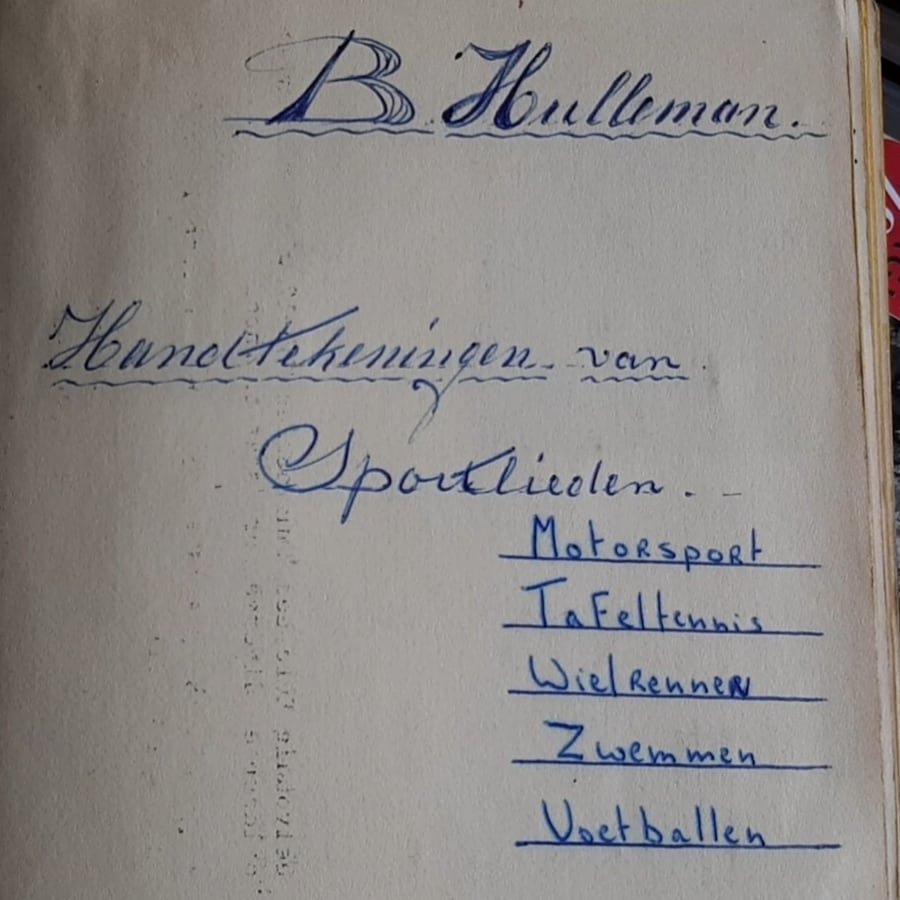 B Hulleman.
Handtekeningen van
Sportlieden.
Motorsport
Tafeltennis
Wielrennen
Zwemmen
Voetballen